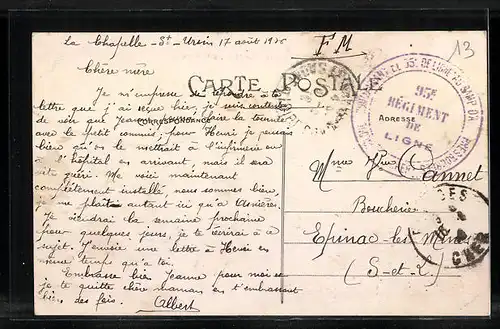 La Chapelle-St-Ursin 17 août
F M
13
CARTE POSTALE
CORRESPONDANCE
ADRESSE
95e
RÉGIMENT
DE
LIGNE
Chère mère
Je m'empresse de répondre à ta
lettre que j'ai reçue hier, je suis content
de voir que Jeanne faire la tournée
avec le petit commis; pour Henri je pensais
bien qu'on le mettrait à l'infirmerie ou
à l'hôpital en arrivant, mais il sera
vite guéri. Me voici maintenant
complètement installé nous sommes bien,
je me plais autant ici qu'à Asnières.
Je viendrai la semaine prochaine
pour quelques jours, je te écrirai à ce
sujet. J'envoie une lettre à Henri en
même temps qu'à toi.
Embrasse bien Jeanne pour moi et
je te quitte chère maman en t'embrassant
bien des fois. Albert
Mme Vve Cannet
Boucherie
Epinac les Mines
(S-et-L)
CHER